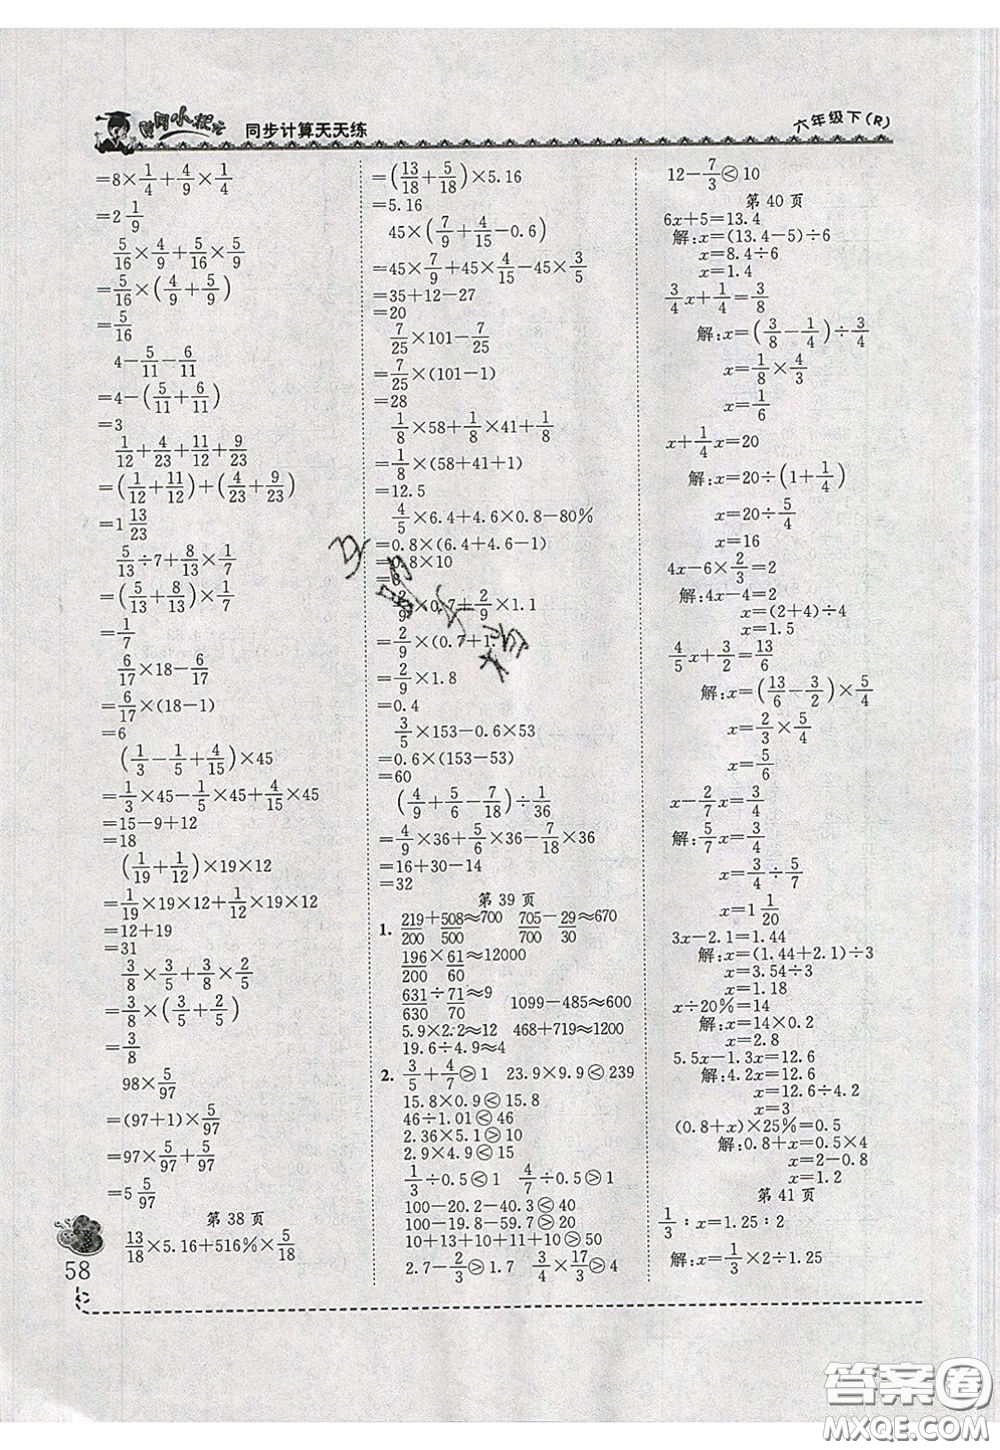 黄冈小状元 同步计算天天练
六年级下(R)
=8×1/4+4/9×1/4
=2 1/9
5/16×4/9+5/16×5/9
=5/16×(4/9+5/9)
=5/16
4-5/11-6/11
=4-(5/11+6/11)
=3
1/12+4/23+11/12+9/23
=(1/12+11/12)+(4/23+9/23)
=1 13/23
5/13÷7+8/13×1/7
=(5/13+8/13)×1/7
=1/7
6/17×18-6/17
=6/17×(18-1)
=6
(1/3-1/5+4/15)×45
=1/3×45-1/5×45+4/15×45
=15-9+12
=18
(1/19+1/12)×19×12
=1/19×19×12+1/12×19×12
=12+19
=31
3/8×3/5+3/8×2/5
=3/8×(3/5+2/5)
=3/8
98×5/97
=(97+1)×5/97
=97×5/97+5/97
=5 5/97
第 38 页
13/18×5.16+516%×5/18
=(13/18+5/18)×5.16
=5.16
45×(7/9+4/15-0.6)
=45×7/9+45×4/15-45×3/5
=35+12-27
=20
7/25×101-7/25
=7/25×(101-1)
=28
1/8×58+1/8×41+1/8
=1/8×(58+41+1)
=12.5
4/5×6.4+4.6×0.8-80%
=0.8×(6.4+4.6-1)
=0.8×10
=8
2/9×0.7+2/9×1.1
=2/9×(0.7+1.1)
=2/9×1.8
=0.4
3/5×153-0.6×53
=0.6×(153-53)
=60
(4/9+5/6-7/18)÷1/36
=4/9×36+5/6×36-7/18×36
=16+30-14
=32
第 39 页
1. 219+508≈700 705-29≈670
200 500 700 30
196×61≈12000
200 60
631÷71≈9 1099-485≈600
630 70
5.9×2.2≈12 468+719≈1200
19.6÷4.9≈4
2. 3/5+4/7>1 23.9×9.9<239
15.8×0.9<15.8
46÷1.01<46
2.36×5.1>10
2.9×4.9<15
1/3÷0.5<1 4/7÷0.5>1
100-20.2-40.3<40
100-19.8-59.7>20
10+13+10+9+11>50
2.7-2/3>1.7 3/4×17/3>4
12-7/3<10
第 40 页
6x+5=13.4
解:x=(13.4-5)÷6
x=8.4÷6
x=1.4
3/4x+1/4=3/8
解:x=(3/8-1/4)÷3/4
x=1/8×4/3
x=1/6
x+1/4x=20
解:x=20÷(1+1/4)
x=20÷5/4
x=16
4x-6×2/3=2
解:4x-4=2
x=(2+4)÷4
x=1.5
4/5x+3/2=13/6
解:x=(13/6-3/2)×5/4
x=2/3×5/4
x=5/6
x-2/7x=3/4
解:5/7x=3/4
x=3/4÷5/7
x=1 1/20
3x-2.1=1.44
解:x=(1.44+2.1)÷3
x=3.54÷3
x=1.18
x÷20%=14
解:x=14×0.2
x=2.8
5.5x-1.3x=12.6
解:4.2x=12.6
x=12.6÷4.2
x=3
(0.8+x)×25%=0.5
解:0.8+x=0.5×4
x=2-0.8
x=1.2
第 41 页
1/3:x=1.25:2
解:x=1/3×2÷1.25
58
答案圈
MXQE.COM